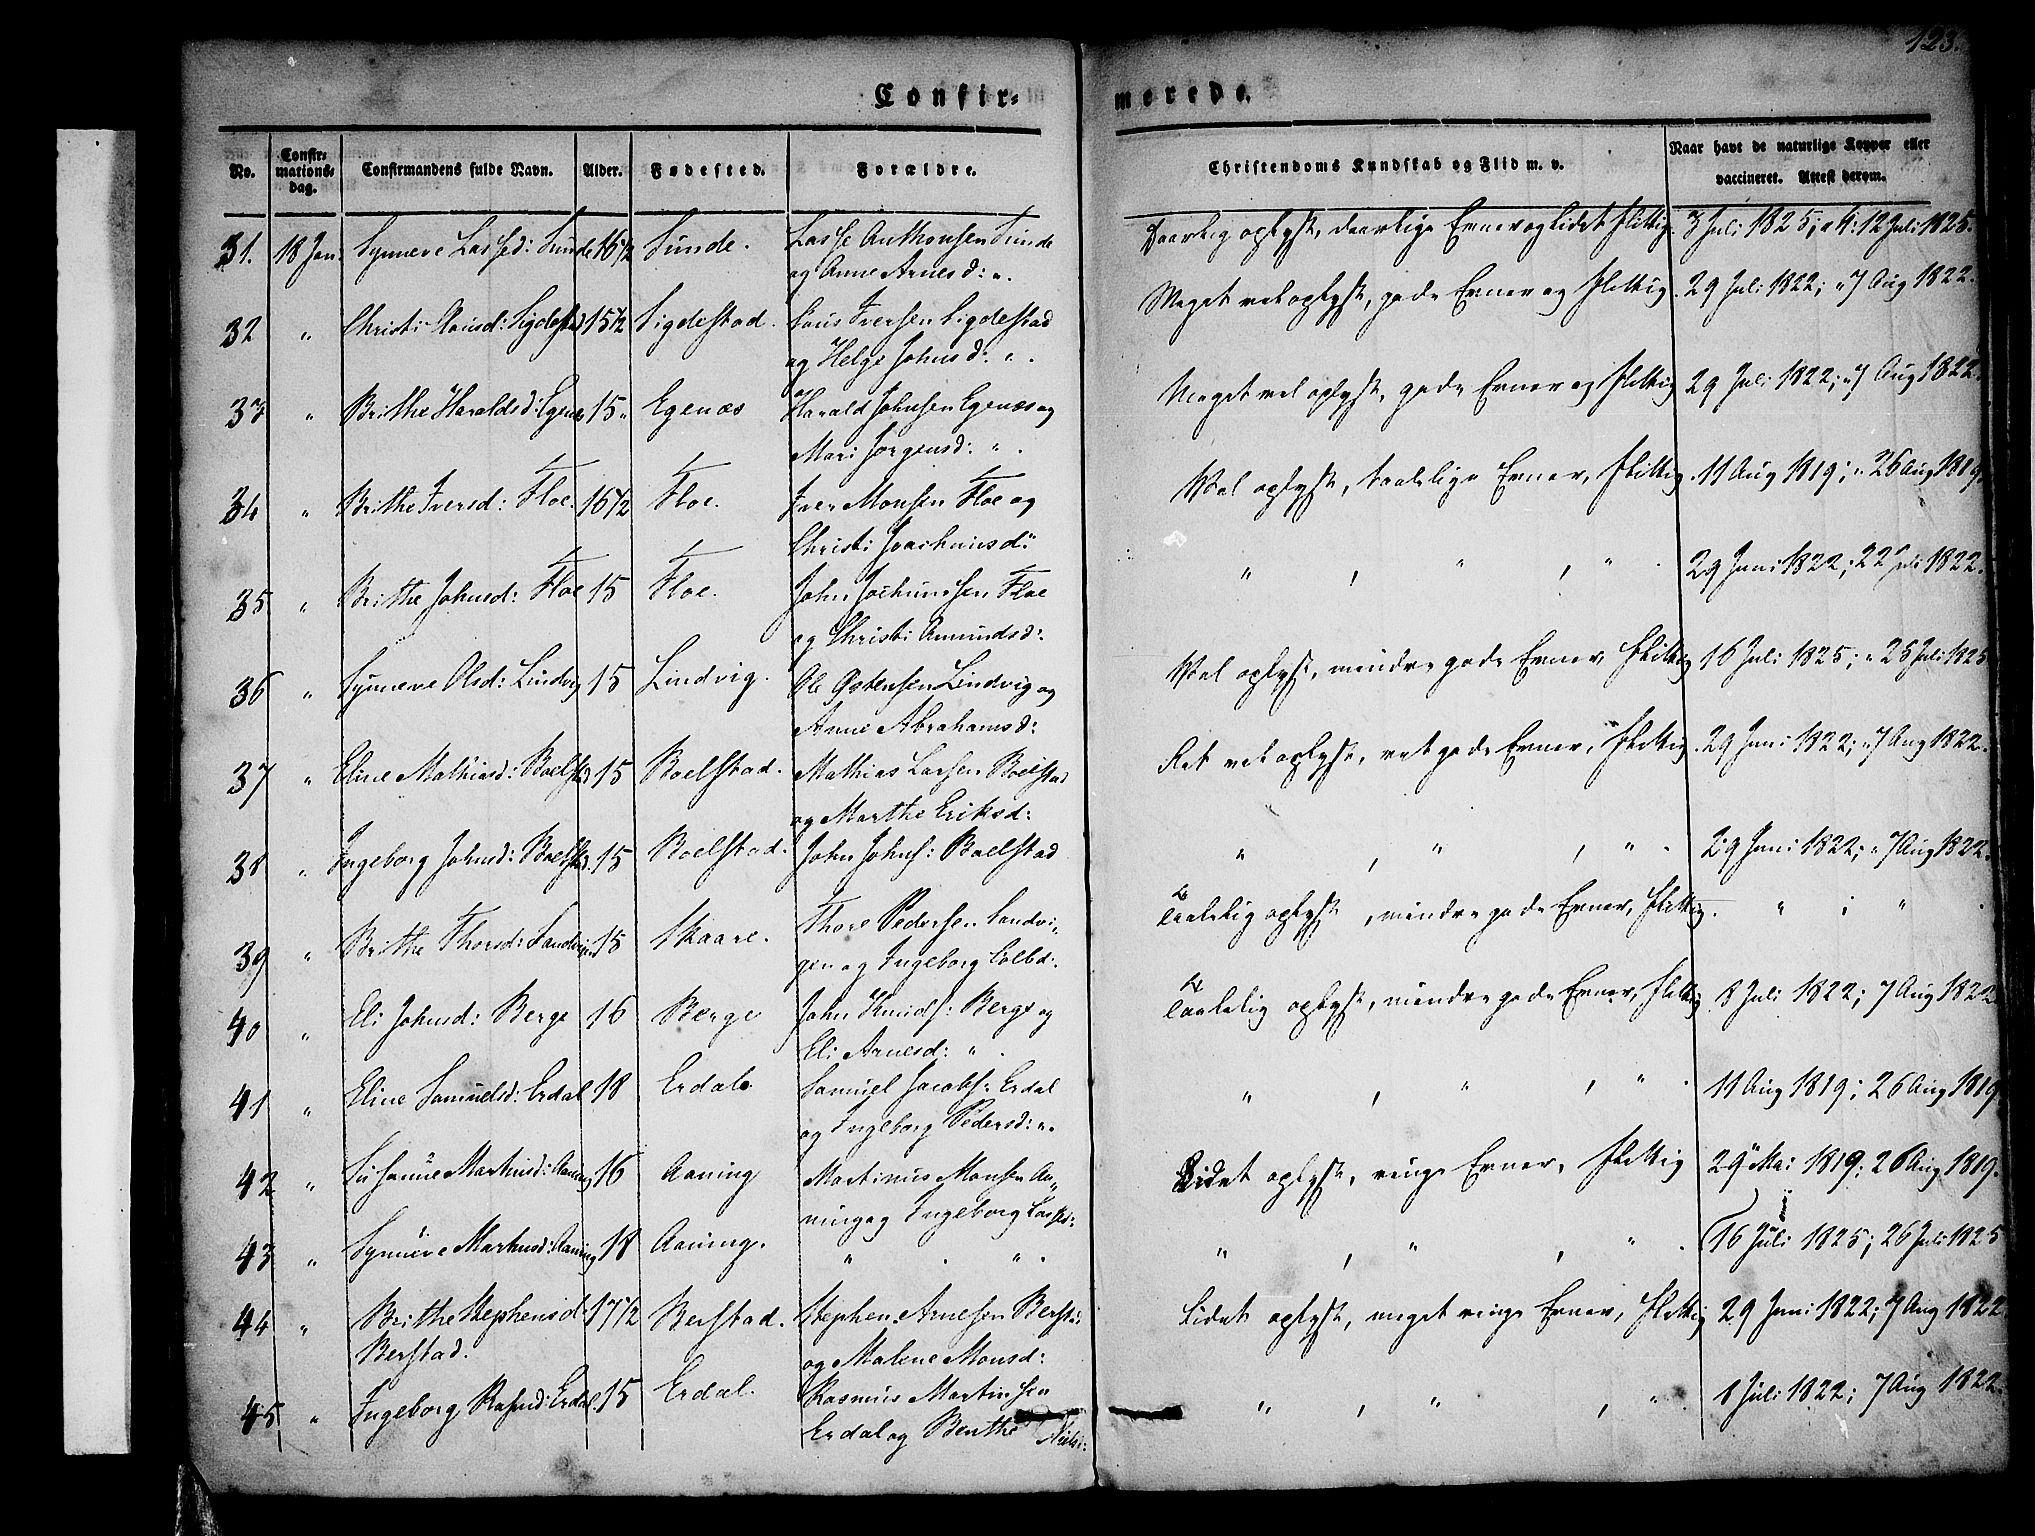 123.
Confir-
merede.
No.
Confir-
mations-
dag.
Confirmandens fulde Navn.
Alder.
Fødested.
Forældre.
Christendoms Kundskab og Flid m. v.
Naar havt de naturlige Kopper eller
vaccineret. Attest derom.
31. 18 Jan: Synneve Lassed: Sunde 16 1/2 Sunde. Lasse Anthonsen Sunde
og Anne Arnesd: ".
Daarlig oplyst, daarlige Evner og lidet flittig. 3 Juli 1825; a 4: 12 Juli 1825.
32 " Christi Aanisd: Sigdestad 15 1/2 Sigdestad. Iversen Sigdestad
og Helge Johnsd: ".
Meget vel oplyst, gode Evner og flittig. 29 Juli 1822; " 7 Aug 1822.
33 " Brithe Haraldsd: Egenæs 15 " Egenæs Harald Johnsen Egenæs og
Mari Jørgensd: ".
Meget vel oplyst, gode Evner og flittig 29 Juli 1822; " 7 Aug 1822.
34 " Brithe Iversd: Floe. 16 1/2 Floe. Iver Monsen Floe og
Christi Joachimsd: "
Vel oplyst, taalelige Evner, flittig. 11 Aug 1819; " 26 Aug 1819
35 " Brithe Johnsd: Floe 15 Floe. John Jochumsen Floe
og Christi Amundsd:
" , " , " . 29 Juni 1822; 22 Juli 1822.
36 " Synneve Olsd: Lindvig 15 Lindvig. Ole Østensen Lindvig og
Anne Abrahamsd:
Vel oplyst, mindre gode Evner, flittig 16 Juli 1825; " 26 Juli 1825
37 " Eline Mathiasd: Boelstad 15 Boelstad. Mathias Larsen Boelstad
og Marthe Eriksd:
Ret vel oplyst, ret gode Evner, flittig. 29 Juni 1822; " 7 Aug 1822.
38 " Ingeborg Johnsd: Boelstd. 15 Boelstad. John Johns: Boelstad
" , " , " . 29 Juni 1822; " 7 Aug 1822.
39 " Brithe Thorsd: Sandvigen 15 Skaare. Thore Pedersen Sandvi-
gen og Ingeborg Colbd:.
Taalelig oplyst, mindre gode Evner, flittig. " ; " .
40 " Eli Johnsd: Berge 16 Berge John Knuds: Berge og
Eli Arnesd: " .
Taalelig oplyst, mindre gode Evner, flittig 8 Juli 1822; 7 Aug 1822
41 " Eline Samuelsd: Erdal 18 Erdal. Samuel Jacobs: Erdal
og Ingeborg Pedersd: ".
" , " , " . 11 Aug 1819; 26 Aug 1819
42 " Susanne Martinsd: Aaning 16 Aaning Martinus Monsen Aa-
ning og Ingeborg Lassd:
Lidet oplyst, ringe Evner, flittig 29 Mai 1819; 26 Aug 1819.
43 " Synneve Martinsd: Aaning 18 Aaning. " . " .
" , " , " . 16 Juli 1825; 26 Juli 1825
44 " Brithe Stephensd: 17 1/2 Berstad. Stephen Arnesen Berstad
Berstad.
og Malene Monsd:
Lidet oplyst, meget ringe Evner, flittig 29 Juni 1822; 7 Aug 1822
45 " Ingeborg Rasmd: Erdal. 15 Erdal. Rasmus Martinsen
Erdal og Benthe Nielsd:
" , " , " 8 Juli 1822; 7 Aug 1822.